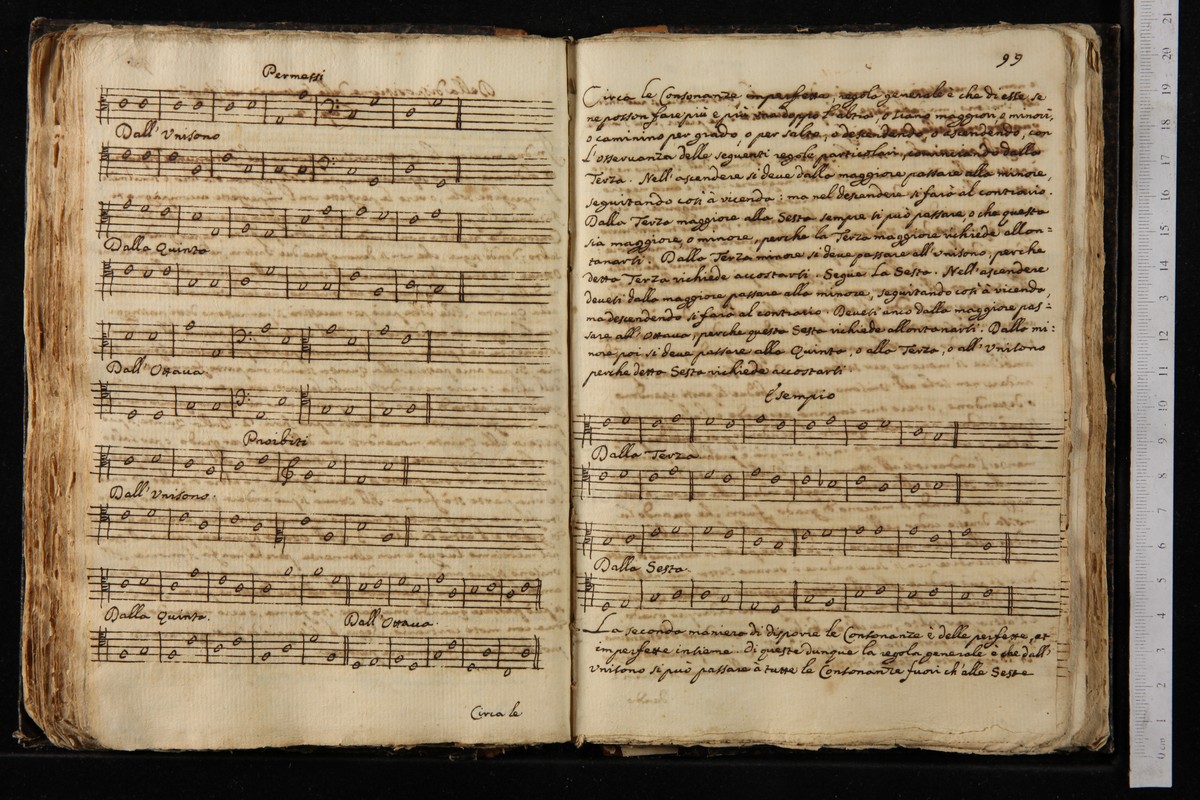 Permessi
Dall' Unisono
Dalla Quinta
Dall' Ottava
Proibiti
Dall' Unisono.
Dalla Quinta.
Dall' Ottava.
Circa le
99
Circa le Consonanze imperfette, regola generale è che di esse se
ne posson fare più e più una doppo l'altra, o siano maggiori o minori,
o caminino per grado, o per salto, o descendendo, o ascendendo, con
l'osservanza delle seguenti regole particolari, cominciando dalla
Terza. Nell' ascendere si deve dalla maggiore passare alla minore,
seguitando così à vicenda: ma nel descendere si farà al contrario.
Dalla Terza maggiore alla Sesta sempre si può passare o che questa
sia maggiore, o minore, perche la Terza maggiore richiede allon=
tanarsi. Dalla Terza minore si deve passare all' Unisono, perche
detta Terza richiede accostarsi. Segue la Sesta. Nell' ascendere
devesi dalla maggiore passare alla minore, seguitando così à vicenda,
ma descendendo si farà al contrario. Devesi anco dalla maggiore pas=
sare all' Ottava, perche questa Sesta richiede allontanarsi. Dalla mi=
nore poi si deve passare alla Quinta, o alla Terza, o all' Unisono
perche detta Sesta richiede accostarsi
Esempio
Dalla Terza
Dalla Sesta.
La seconda maniera di disporre le Consonanze è delle perfette, et
imperfette insieme. Di queste dunque la regola generale è che dall'
Unisono si può passare à tutte le Consonanze fuori ch' alle Seste
0 cm 1 2 3 4 5 6 7 8 9 10 11 12 13 14 15 16 17 18 19 20 21